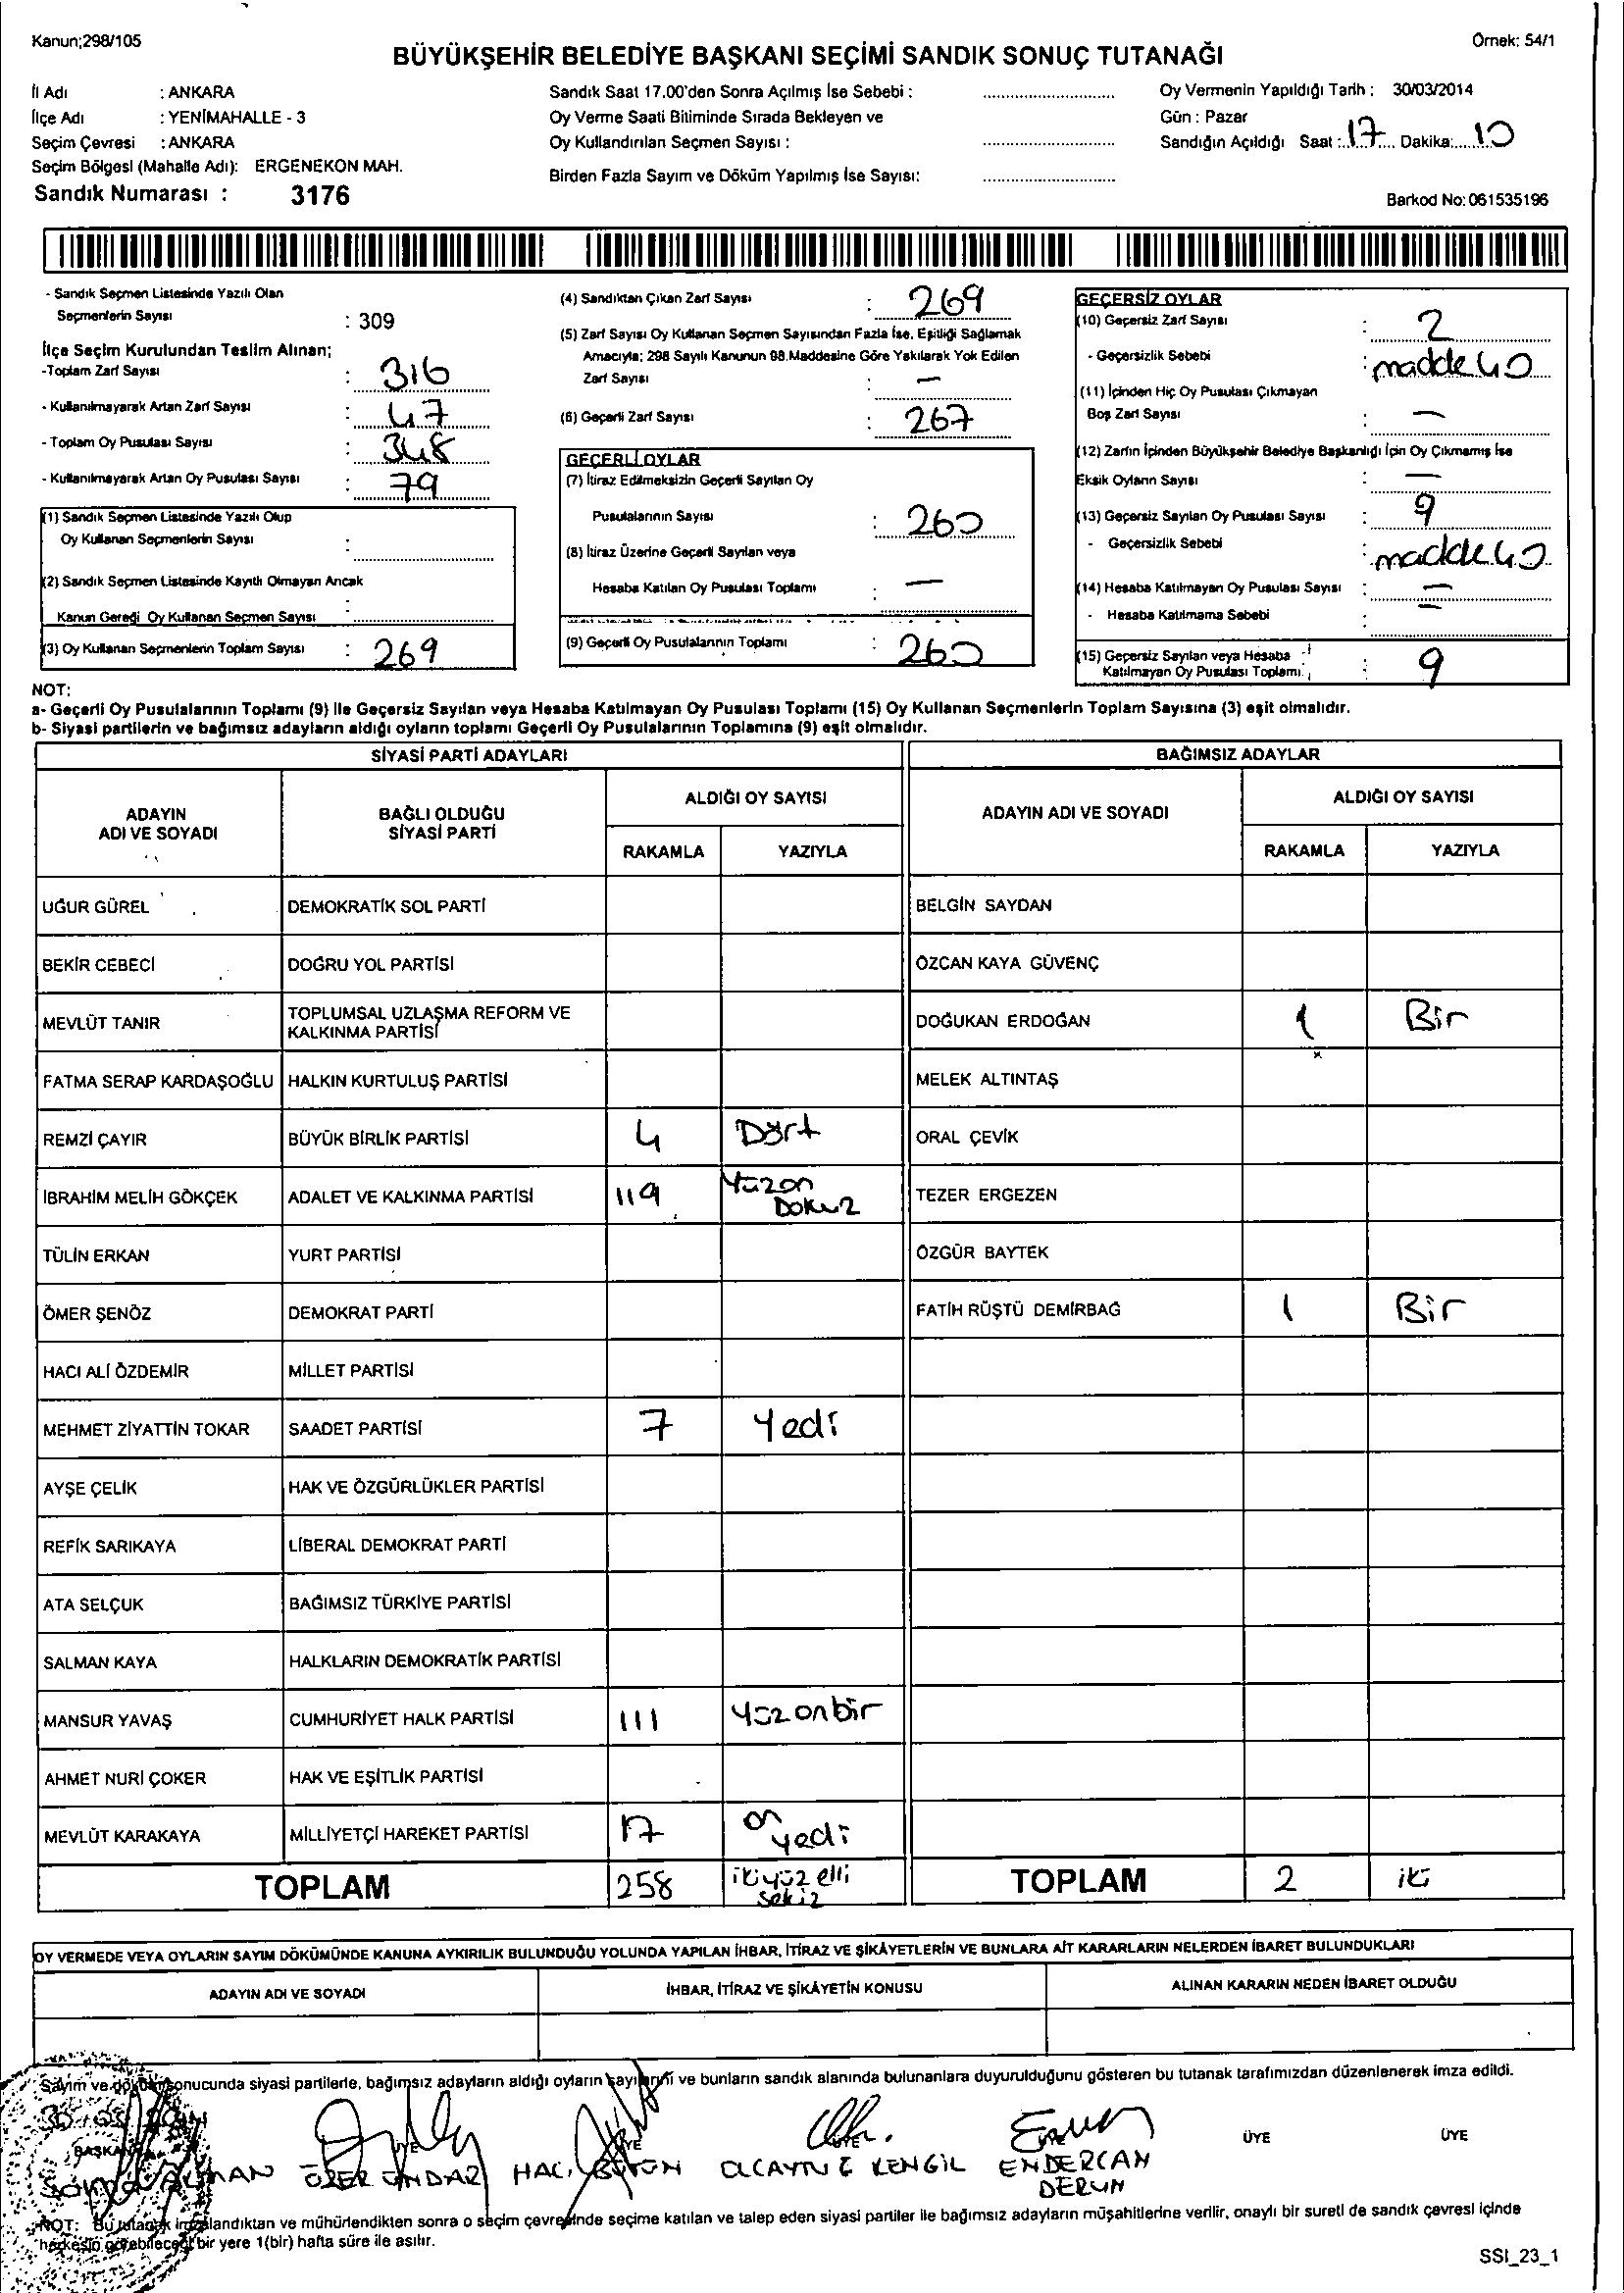 Kanun;298/105
Örnek: 54/1
BÜYÜKŞEHİR BELEDİYE BAŞKANI SEÇİMİ SANDIK SONUÇ TUTANAĞI
İl Adı : ANKARA
İlçe Adı : YENİMAHALLE - 3
Seçim Çevresi : ANKARA
Seçim Bölgesi (Mahalle Adı): ERGENEKON MAH.
Sandık Numarası : 3176
Sandık Saat 17.00'den Sonra Açılmış İse Sebebi :
Oy Verme Saati Bitiminde Sırada Bekleyen ve
Oy Kullandırılan Seçmen Sayısı :
Birden Fazla Sayım ve Döküm Yapılmış İse Sayısı:
Oy Vermenin Yapıldığı Tarih : 30/03/2014
Gün : Pazar
Sandığın Açıldığı Saat : 17 Dakika: 10
Barkod No: 061535196
- Sandık Seçmen Listesinde Yazılı Olan
Seçmenlerin Sayısı : 309
İlçe Seçim Kurulundan Teslim Alınan;
-Toplam Zarf Sayısı : 316
- Kullanılmayarak Artan Zarf Sayısı : 47
- Toplam Oy Pusulası Sayısı : 348
- Kullanılmayarak Artan Oy Pusulası Sayısı : 79
(1) Sandık Seçmen Listesinde Yazılı Olup
Oy Kullanan Seçmenlerin Sayısı :
(2) Sandık Seçmen Listesinde Kayıtlı Olmayan Ancak
Kanun Gereği Oy Kullanan Seçmen Sayısı :
(3) Oy Kullanan Seçmenlerin Toplam Sayısı : 269
(4) Sandıktan Çıkan Zarf Sayısı : 269
(5) Zarf Sayısı Oy Kullanan Seçmen Sayısından Fazla İse, Eşitliği Sağlamak
Amacıyla; 298 Sayılı Kanunun 98.Maddesine Göre Yakılarak Yok Edilen
Zarf Sayısı : —
(6) Geçerli Zarf Sayısı : 267
GEÇERLİ OYLAR
(7) İtiraz Edilmeksizin Geçerli Sayılan Oy
Pusulalarının Sayısı : 260
(8) İtiraz Üzerine Geçerli Sayılan veya
Hesaba Katılan Oy Pusulası Toplamı : —
(9) Geçerli Oy Pusulalarının Toplamı : 260
GEÇERSİZ OYLAR
(10) Geçersiz Zarf Sayısı : 2
- Geçersizlik Sebebi : madde 40
(11) İçinden Hiç Oy Pusulası Çıkmayan
Boş Zarf Sayısı : —
(12) Zarfın İçinden Büyükşehir Belediye Başkanlığı İçin Oy Çıkmamış İse
Eksik Oyların Sayısı : —
(13) Geçersiz Sayılan Oy Pusulası Sayısı : 9
- Geçersizlik Sebebi : madde 40
(14) Hesaba Katılmayan Oy Pusulası Sayısı : —
- Hesaba Katılmama Sebebi : —
(15) Geçersiz Sayılan veya Hesaba
Katılmayan Oy Pusulası Toplamı : 9
NOT:
a- Geçerli Oy Pusulalarının Toplamı (9) İle Geçersiz Sayılan veya Hesaba Katılmayan Oy Pusulası Toplamı (15) Oy Kullanan Seçmenlerin Toplam Sayısına (3) eşit olmalıdır.
b- Siyasi partilerin ve bağımsız adayların aldığı oyların toplamı Geçerli Oy Pusulalarının Toplamına (9) eşit olmalıdır.
SİYASİ PARTİ ADAYLARI BAĞIMSIZ ADAYLAR
ADAYIN ADI VE SOYADI BAĞLI OLDUĞU SİYASİ PARTİ ALDIĞI OY SAYISI ADAYIN ADI VE SOYADI ALDIĞI OY SAYISI
RAKAMLA YAZIYLA RAKAMLA YAZIYLA
UĞUR GÜREL DEMOKRATİK SOL PARTİ BELGİN SAYDAN
BEKİR CEBECİ DOĞRU YOL PARTİSİ ÖZCAN KAYA GÜVENÇ
MEVLÜT TANIR TOPLUMSAL UZLAŞMA REFORM VE KALKINMA PARTİSİ DOĞUKAN ERDOĞAN 1 Bir
FATMA SERAP KARDAŞOĞLU HALKIN KURTULUŞ PARTİSİ MELEK ALTINTAŞ
REMZİ ÇAYIR BÜYÜK BİRLİK PARTİSİ 4 Dört ORAL ÇEVİK
İBRAHİM MELİH GÖKÇEK ADALET VE KALKINMA PARTİSİ 119 Yüzon Dokuz TEZER ERGEZEN
TÜLİN ERKAN YURT PARTİSİ ÖZGÜR BAYTEK
ÖMER ŞENÖZ DEMOKRAT PARTİ FATİH RÜŞTÜ DEMİRBAĞ 1 Bir
HACI ALİ ÖZDEMİR MİLLET PARTİSİ
MEHMET ZİYATTİN TOKAR SAADET PARTİSİ 7 Yedi
AYŞE ÇELİK HAK VE ÖZGÜRLÜKLER PARTİSİ
REFİK SARIKAYA LİBERAL DEMOKRAT PARTİ
ATA SELÇUK BAĞIMSIZ TÜRKİYE PARTİSİ
SALMAN KAYA HALKLARIN DEMOKRATİK PARTİSİ
MANSUR YAVAŞ CUMHURİYET HALK PARTİSİ 111 Yüzonbir
AHMET NURİ ÇOKER HAK VE EŞİTLİK PARTİSİ
MEVLÜT KARAKAYA MİLLİYETÇİ HAREKET PARTİSİ 17 on yedi
TOPLAM 258 ikiyüz elli sekiz TOPLAM 2 iki
OY VERMEDE VEYA OYLARIN SAYIM DÖKÜMÜNDE KANUNA AYKIRILIK BULUNDUĞU YOLUNDA YAPILAN İHBAR, İTİRAZ VE ŞİKÂYETLERİN VE BUNLARA AİT KARARLARIN NELERDEN İBARET BULUNDUKLARI
ADAYIN ADI VE SOYADI İHBAR, İTİRAZ VE ŞİKÂYETİN KONUSU ALINAN KARARIN NEDEN İBARET OLDUĞU
Sayım ve döküm sonucunda siyasi partilerle, bağımsız adayların aldığı oyların sayılarını ve bunların sandık alanında bulunanlara duyurulduğunu gösteren bu tutanak tarafımızdan düzenlenerek imza edildi.
BAŞKAN ÜYE ÜYE ÜYE ÜYE ÜYE ÜYE
ÖZER HACI OLCAYTU KENGİL ENDERCAN
DERUN
NOT: Bu tutanak imzalandıktan ve mühürlendikten sonra o seçim çevresinde seçime katılan ve talep eden siyasi partiler ile bağımsız adayların müşahitlerine verilir, onaylı bir sureti de sandık çevresi içinde
herkesin görebileceği bir yere 1(bir) hafta süre ile asılır.
SSI_23_1